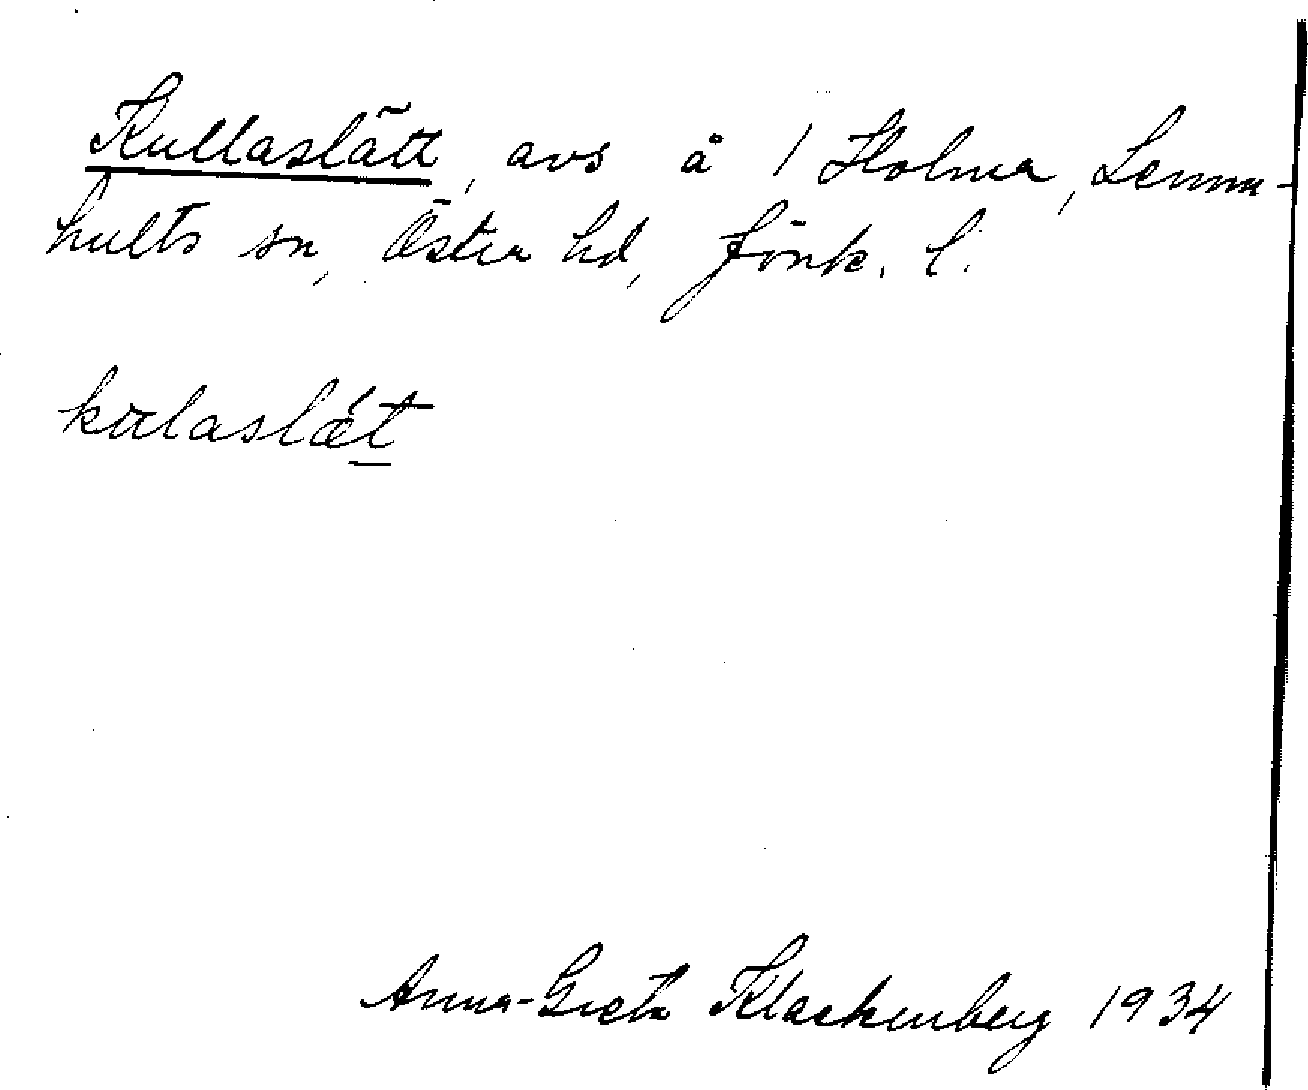 Kullaslätt, avs å 1 Holma, Lemn-
hults sn, Östra hd, Jönk. l.
kulaslæt
Anna-Greta Klackenberg 1934